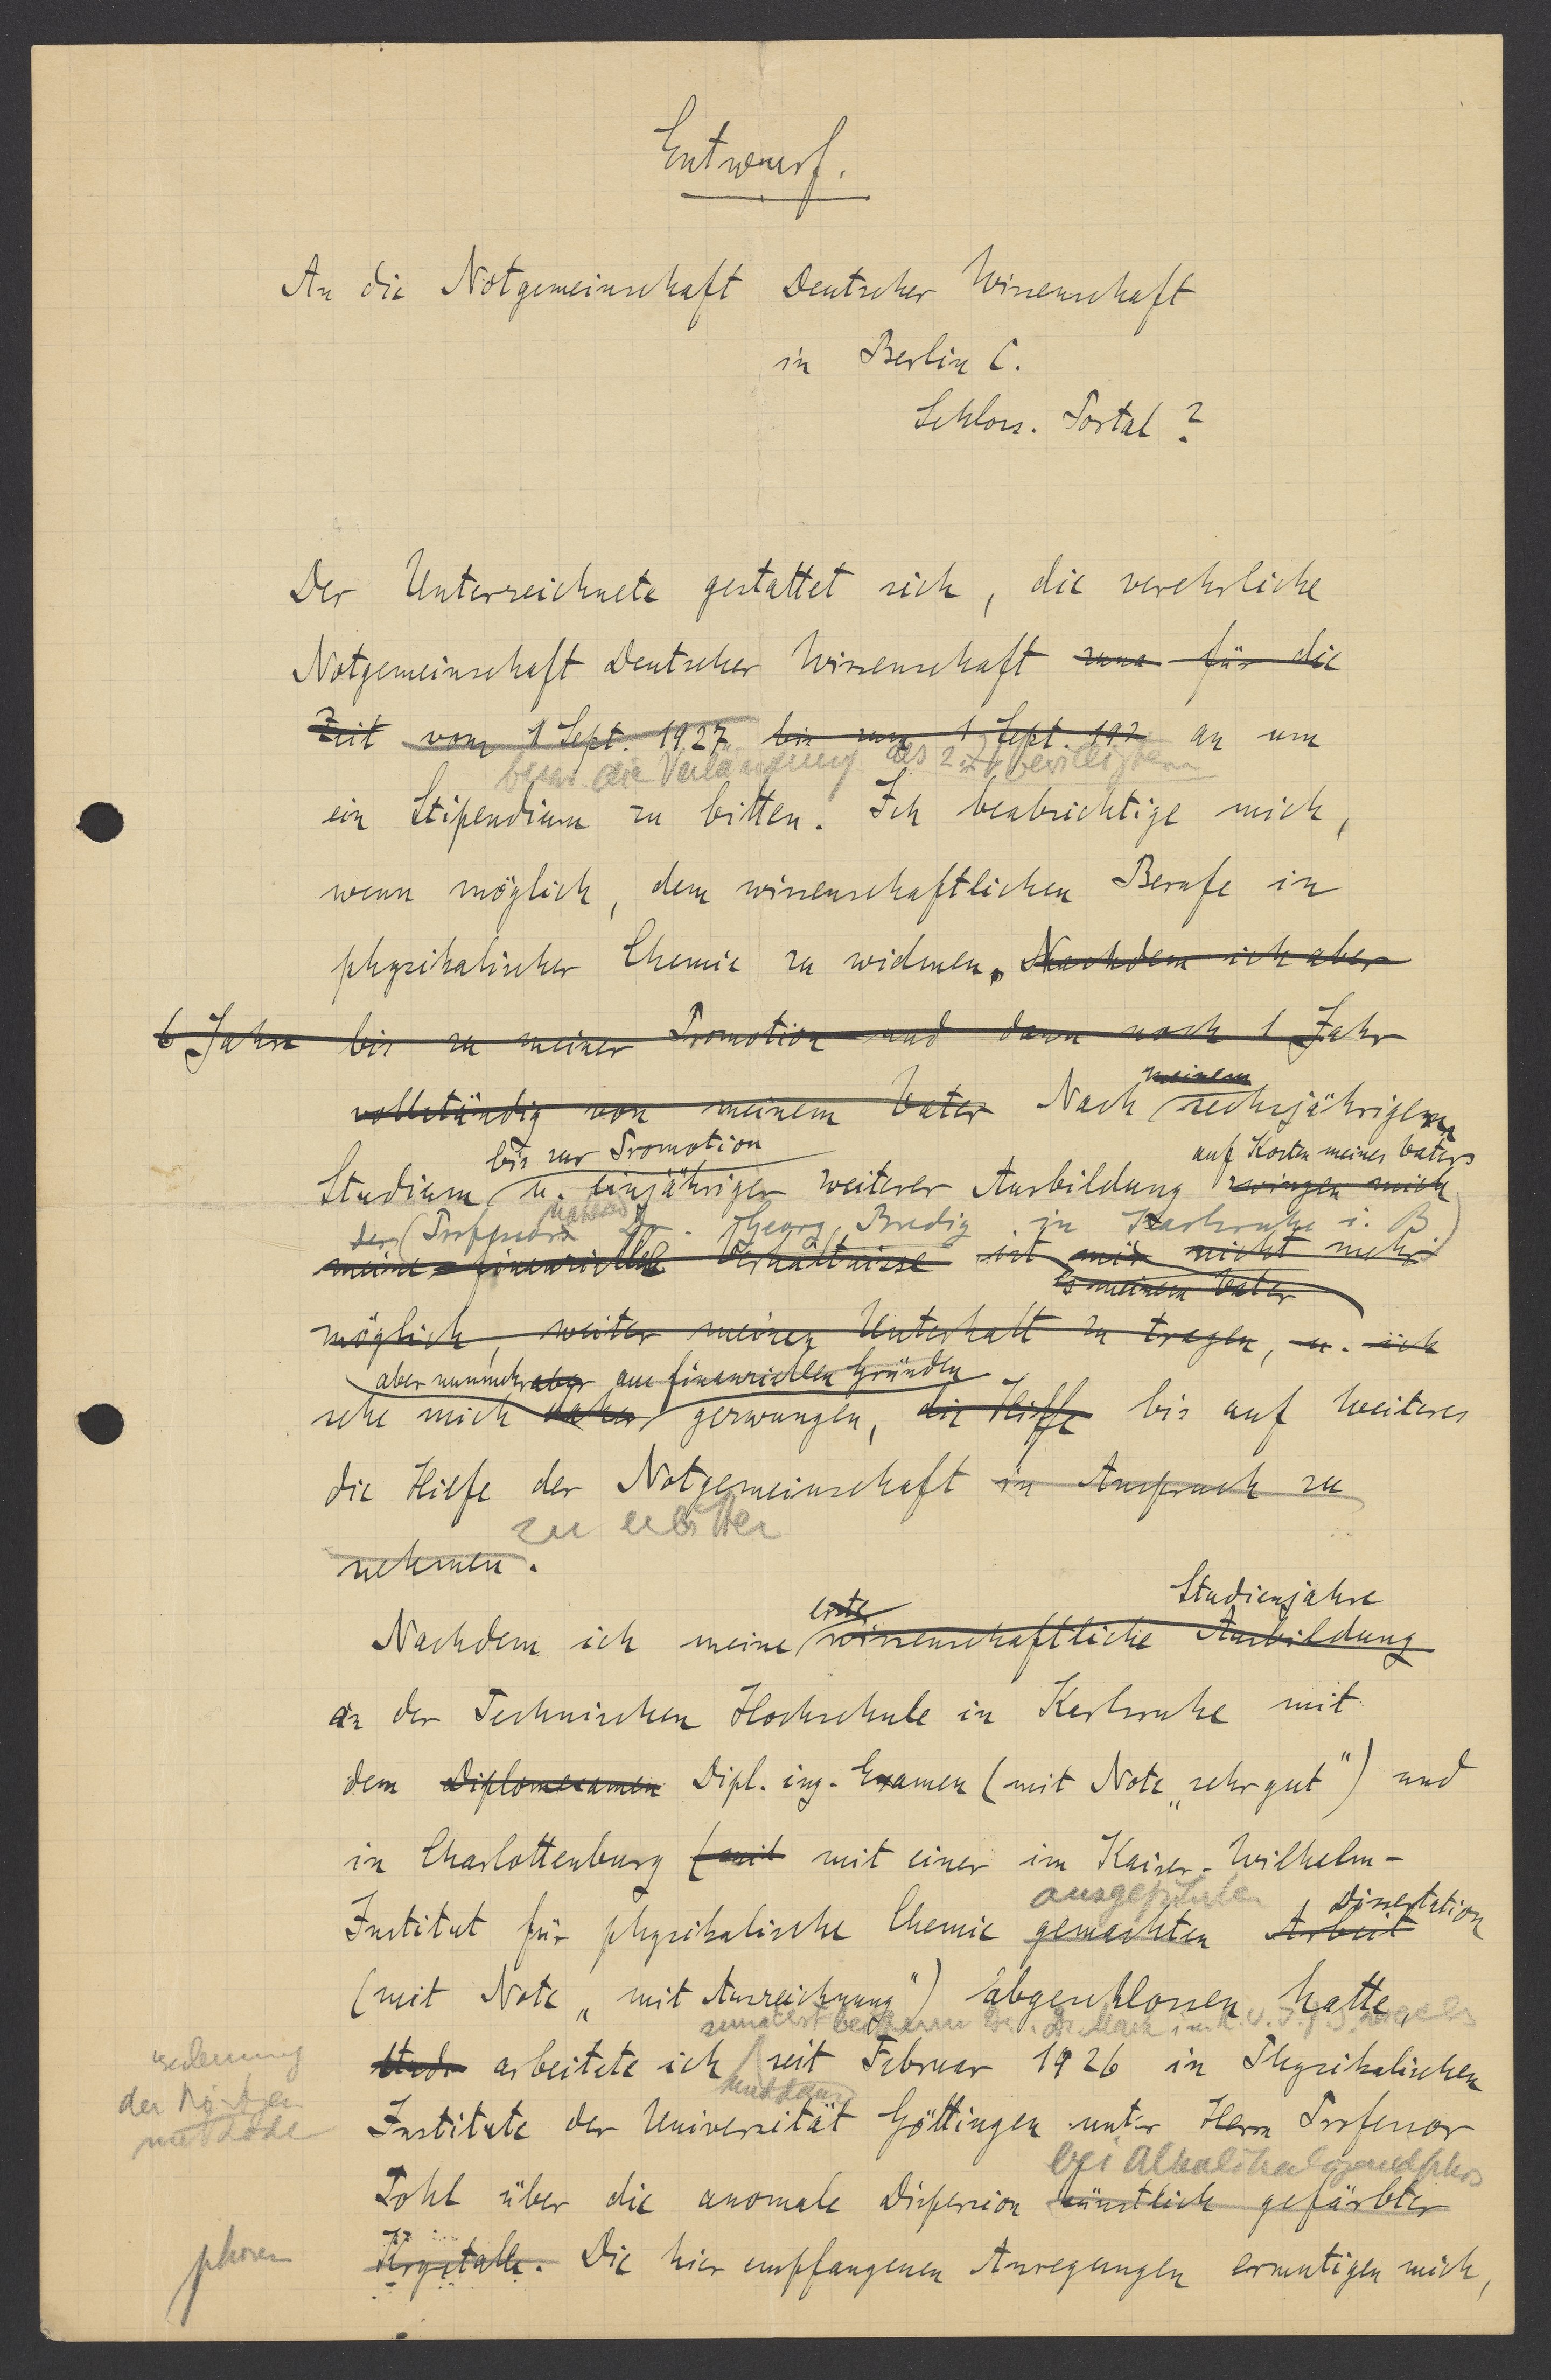 Entwurf.
An die Notgemeinschaft Deutscher Wissenschaft
in Berlin C.
Schloss. Portal ?
Der Unterzeichnete gestattet sich, die verehrliche
Notgemeinschaft Deutscher Wissenschaft für die
Zeit vom 1 Sept. 1927 bis zum 1 Sept. 192 an um
bezw. die Verlängerung des z. Zt bewilligten
ein Stipendium zu bitten. Ich beabsichtige mich,
wenn möglich, dem wissenschaftlichen Berufe in
physikalischer Chemie zu widmen. Nachdem ich aber
6 Jahre bis zu meiner Promotion und dann noch 1 Jahr
meinem
vollständig von meinem Vater Nach sechsjährigem
bis zur Promotion
auf Kosten meines Vaters
Studium u. einjähriger weiterer Ausbildung zwingen mich
der (Professors Dr. Georg Bredig in Karlsruhe i. B)
meine finanziellen Verhältnisse ist mir nicht mehr
es meinem Vater
möglich, weiter meinen Unterhalt zu tragen, u. ich
aber nunmehr aber aus finanziellen Gründen
sehe mich daher gezwungen, die Hilfe bis auf Weiteres
die Hilfe der Notgemeinschaft in Anspruch zu
zu erbitten
nehmen.
erste
Studienjahre
Nachdem ich meine wissenschaftliche Ausbildung
an der Technischen Hochschule in Karlsruhe mit
dem Diplomexamen Dipl. ing. Examen (mit Note „sehr gut") und
in Charlottenburg (mit mit einer im Kaiser-Wilhelm-
ausgeführten
Dissertation
Institut für physikalische Chemie gemachten Arbeit
(mit Note „mit Auszeichnung") abgeschlossen hatte,
zunächst bei Herrn Dr. Mark im K. W. I. f.
arbeitete ich seit Februar 1926 in Physikalischen
und dann
der Röntgen
methode
Institute der Universität Göttingen unter Herrn Professor
bei Alkalihalogenidphos
Pohl über die anomale Dispersion künstlich gefärbter
phoren
Krystalle. Die hier empfangenen Anregungen ermutigen mich,